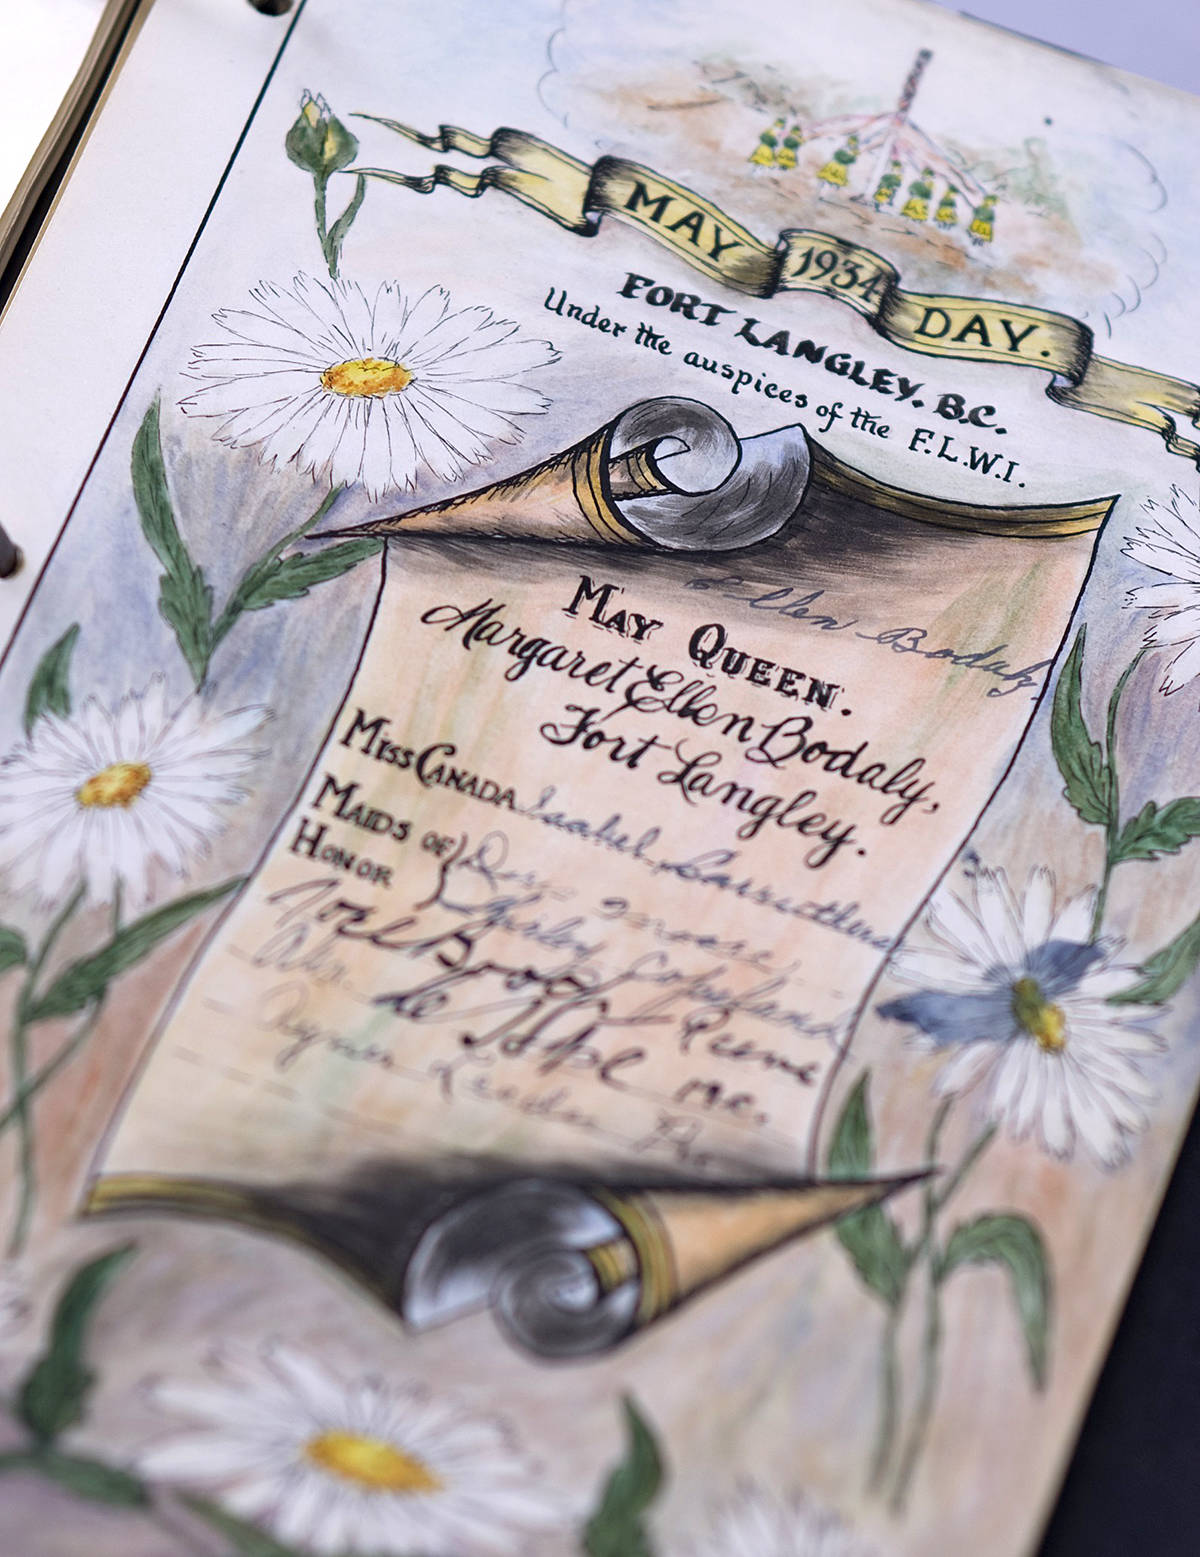 MAY 1934 DAY.
FORT LANGLEY. B.C.
Under the auspices of the F.L.W.I.
Ellen Bodaly
MAY QUEEN.
Margaret Ellen Bodaly,
Fort Langley.
MISS CANADA Isabel Carruthers
MAIDS OF HONOR
Shirley Copeland
Noel Booth Reeve
Hope M.C.